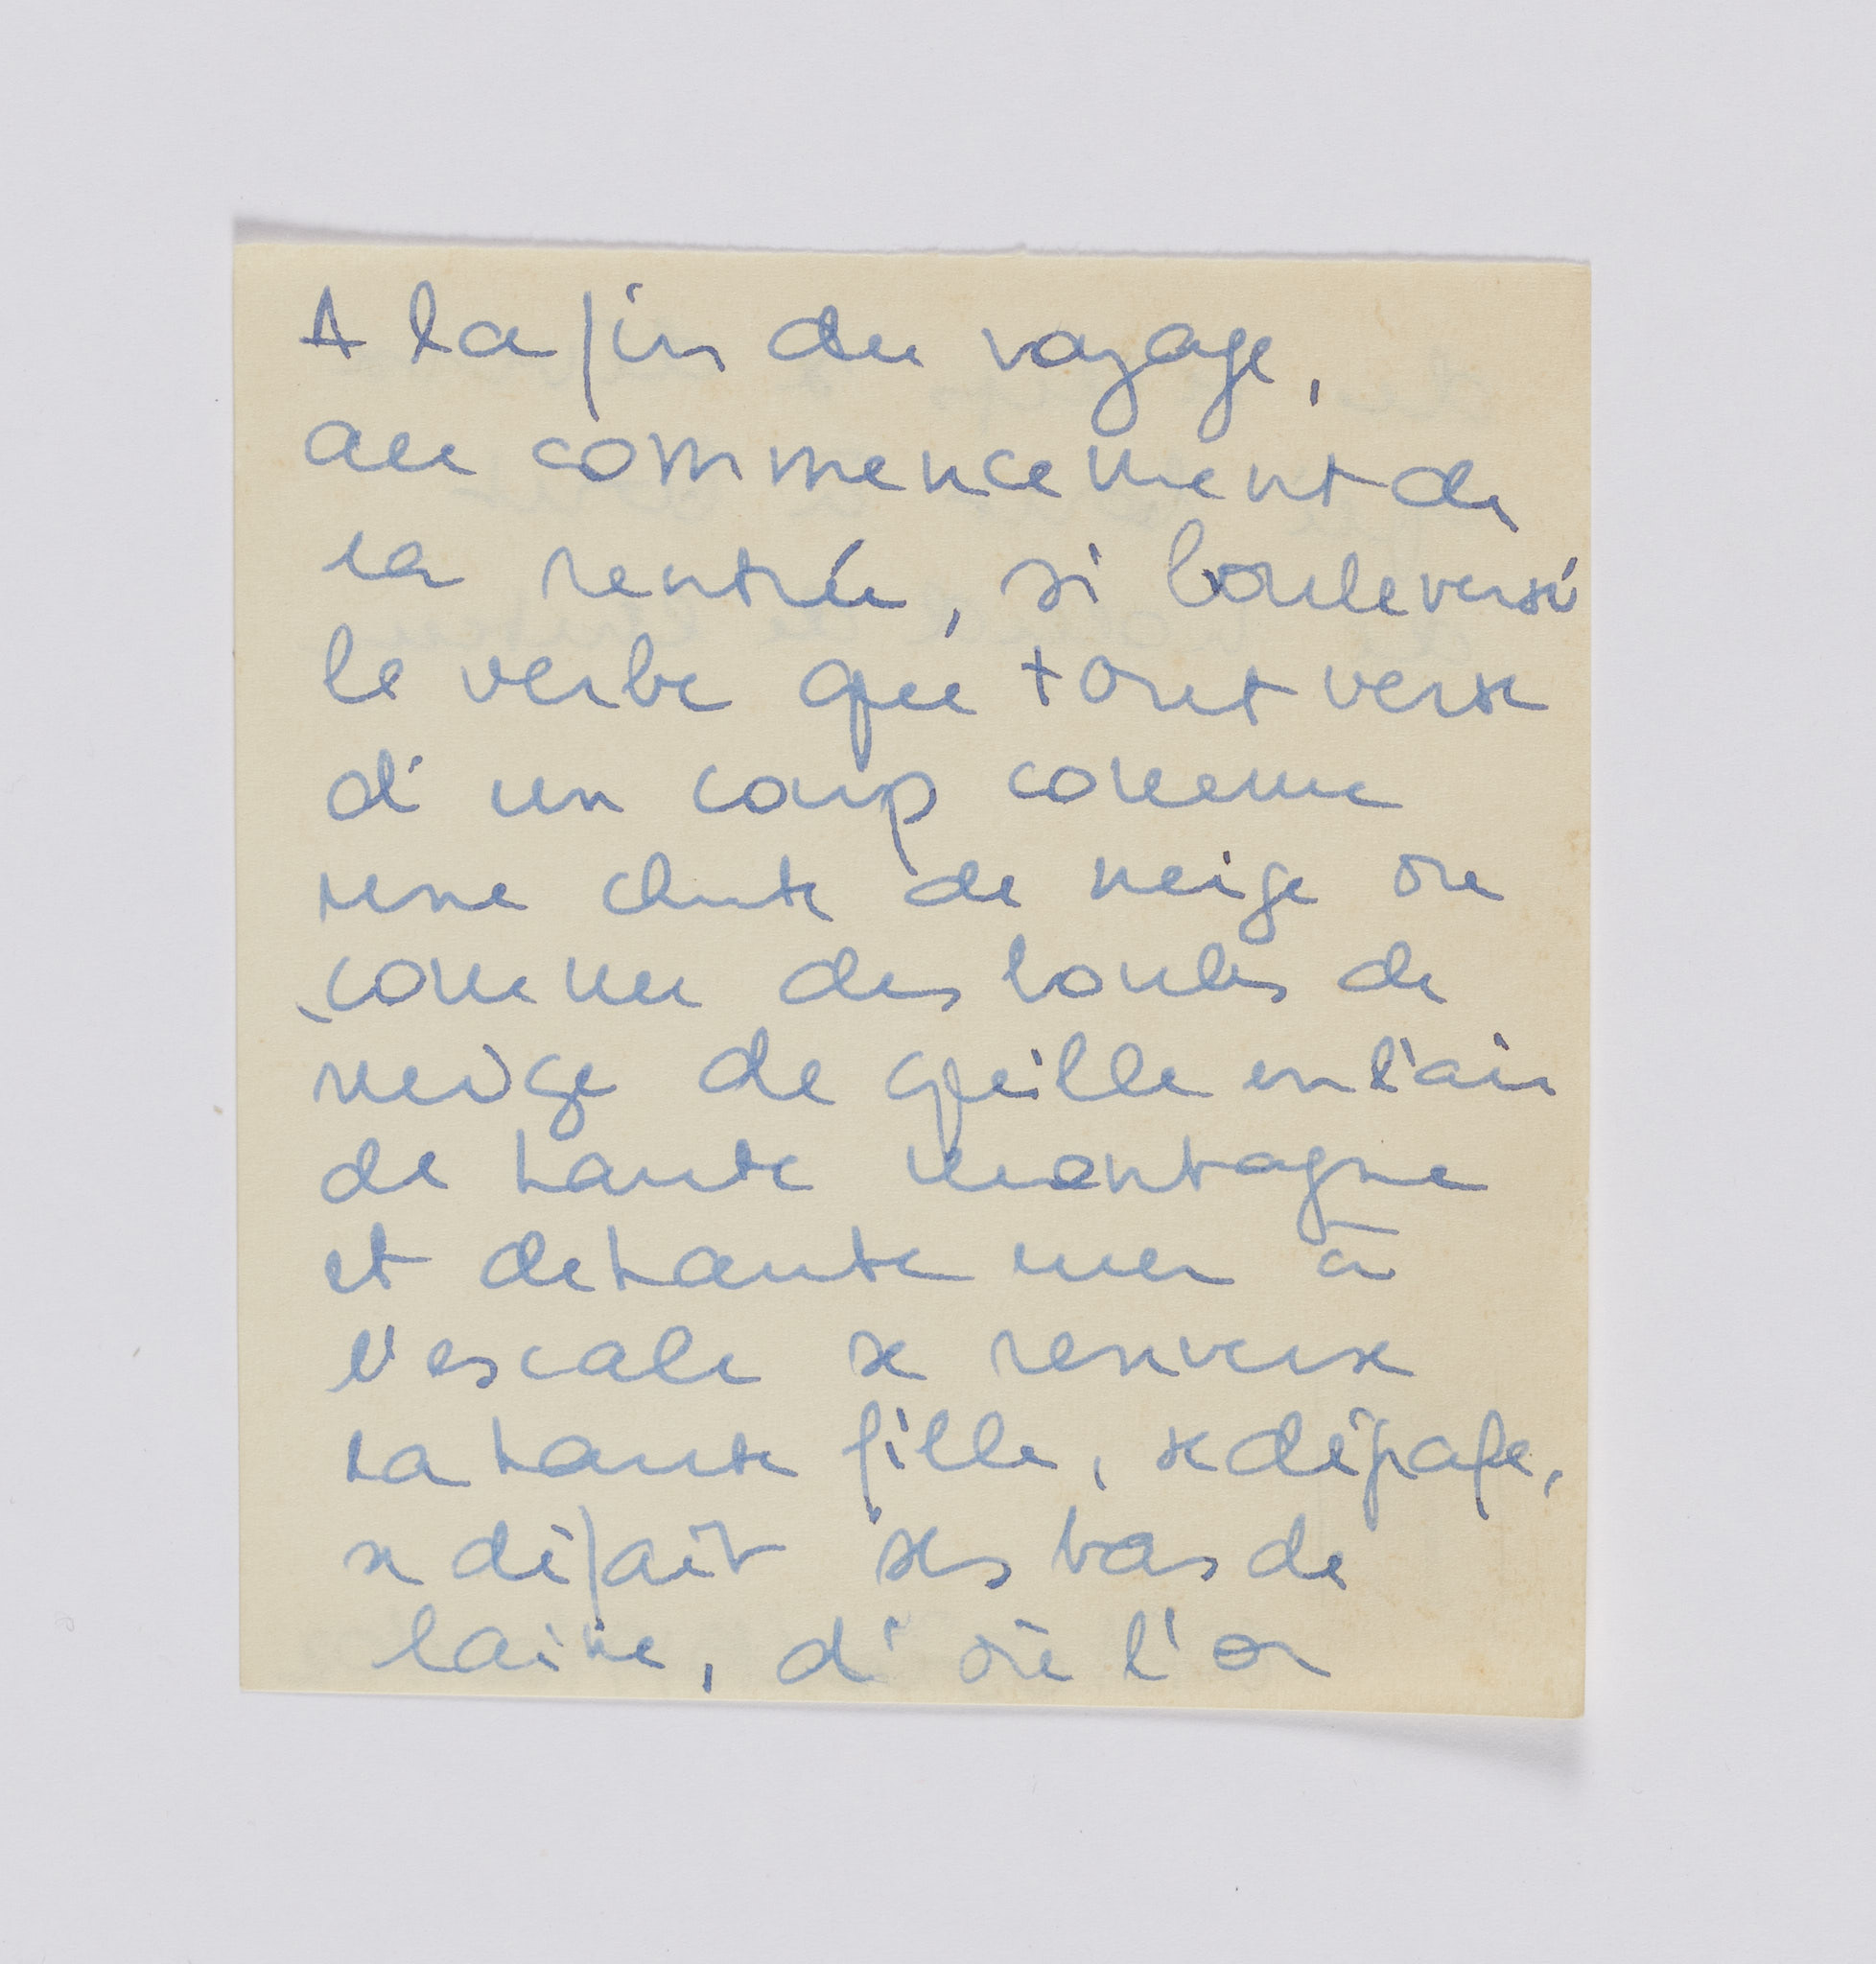 A la fin du voyage,
au commencement de
la rentrée, si bouleversé
le verbe que tout verse
d'un coup comme
une chute de neige ou
comme des boules de
neige de quille en l'air
de haute montagne
et de haute mer à
l'escale se renverse
la haute fille, se dégrafe,
se défait ses bas de
laine, d'où l'or